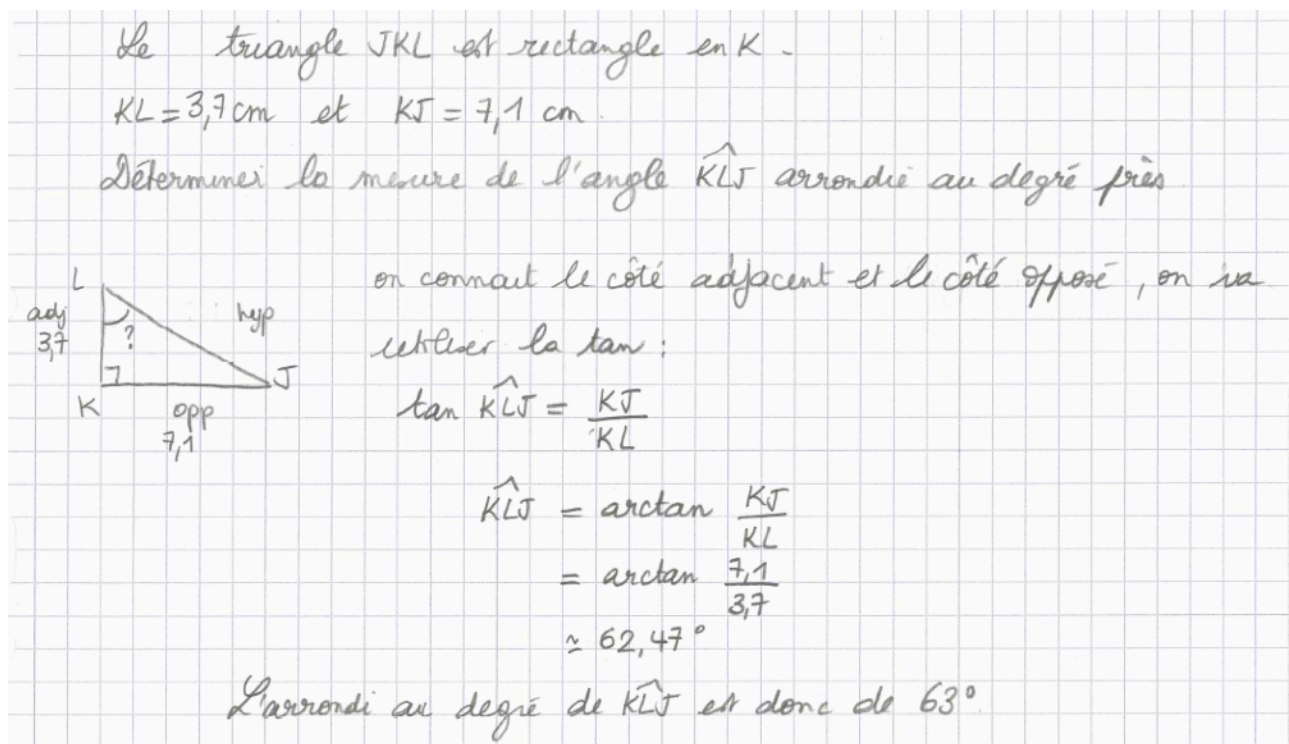 Le triangle JKL est rectangle en K.
KL = 3,7 cm et KJ = 7,1 cm.
Déterminer la mesure de l'angle \widehat{KLJ} arrondie au degré près
L
adj
3,7
?
hyp
K
J
opp
7,1
on connait le côté adjacent et le côté opposé, on va
utiliser la tan :
tan \widehat{KLJ} = \frac{KJ}{KL}
\widehat{KLJ} = arctan \frac{KJ}{KL}
= arctan \frac{7,1}{3,7}
≃ 62,47°
L'arrondi au degré de \widehat{KLJ} est donc de 63°